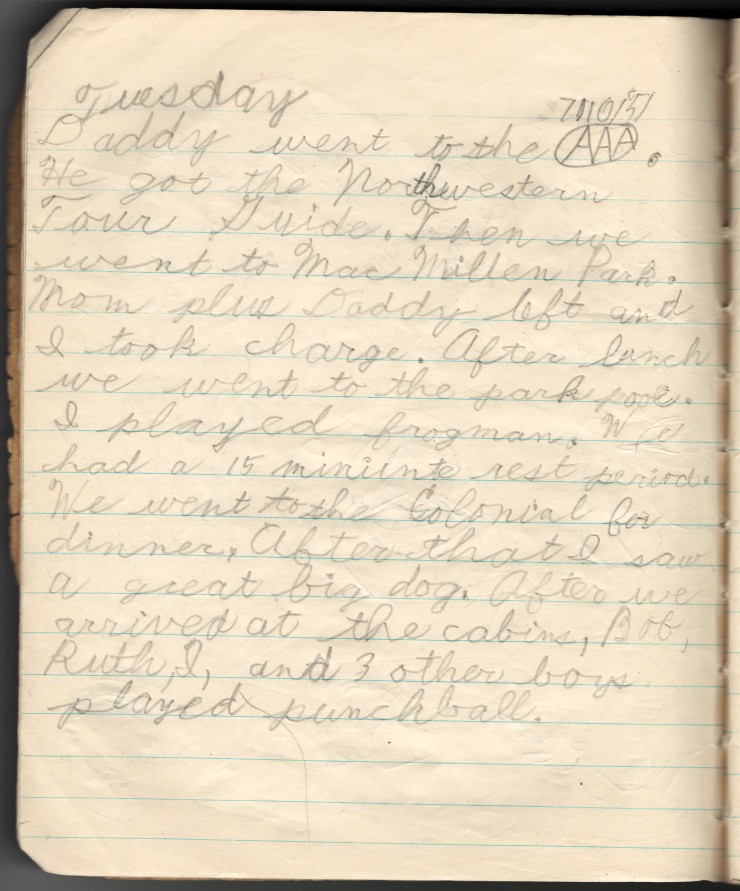 Tuesday 7/10/51
Daddy went to the AAA.
He got the Northwestern
Tour Guide. Then we
went to Mac Millen Park.
Mom plus Daddy left and
I took charge. After lunch
we went to the park pool.
I played frogman. We
had a 15 miniunte rest period.
We went to the Colonial for
dinner. After that I saw
a great big dog. After we
arrived at the cabins, Bob,
Ruth, I, and 3 other boys
played punchball.